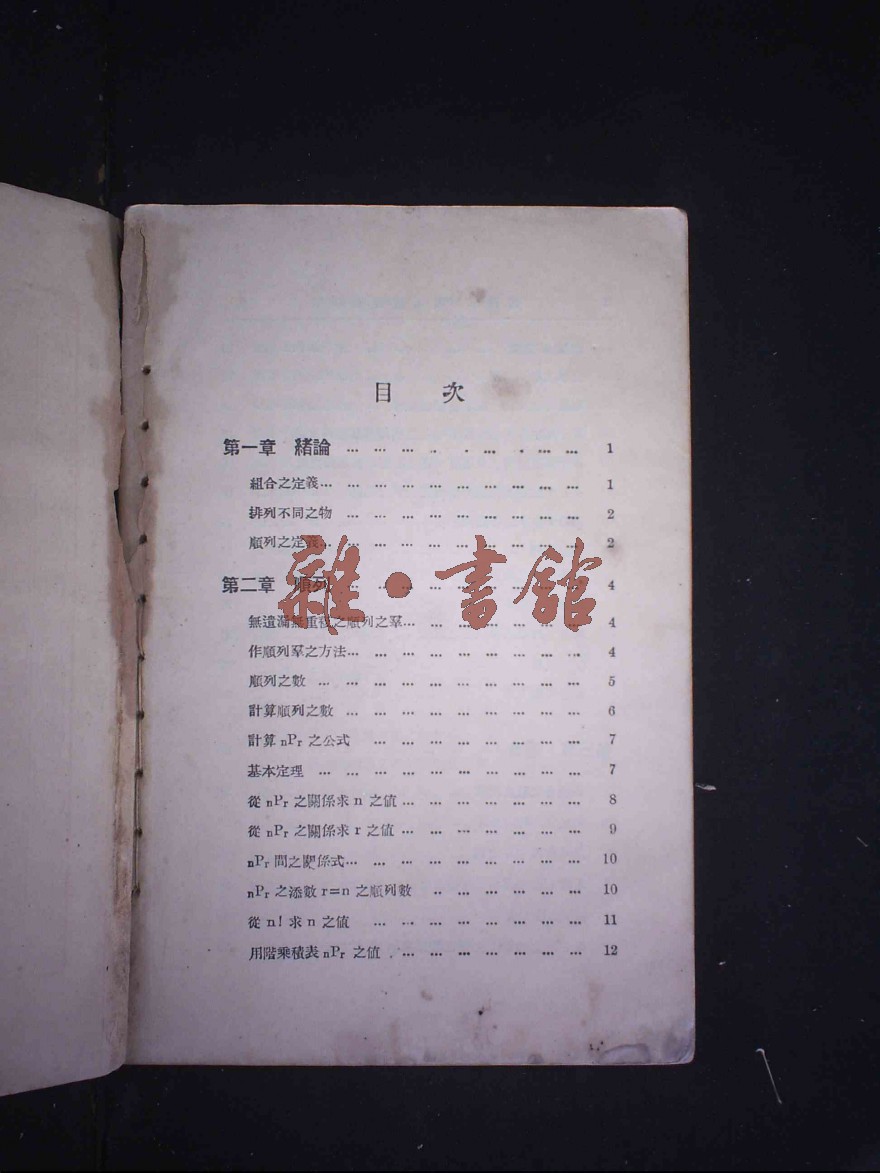 目 次
第一章 緒論 … … … . . … . … … 1
組合之定義… … … … … … … … … … 1
排列不同之物 … … … … … … … … … 2
順列之定義… … … … … … … … … … 2
第二章 順列 … … … … … … … … … 4
無遺漏無重複之順列之羣… … … … … … … 4
作順列羣之方法… … … … … … … … … 4
順列之數 … … … … … … … … … … 5
計算順列之數 … … … … … … … … … 6
計算 nPr 之公式 … … … … … … … … 7
基本定理 … … … … … … … … … … 7
從 nPr 之關係求 n 之值… … … … … … … 8
從 nPr 之關係求 r 之值… … … … … … … 9
nPr 間之關係式… … … … … … … … … 10
nPr 之添數 r=n 之順列數 … … … … … … 10
從 n! 求 n 之值 … … … … … … … … 11
用階乘積表 nPr 之值 … … … … … … … 12
雜·書館